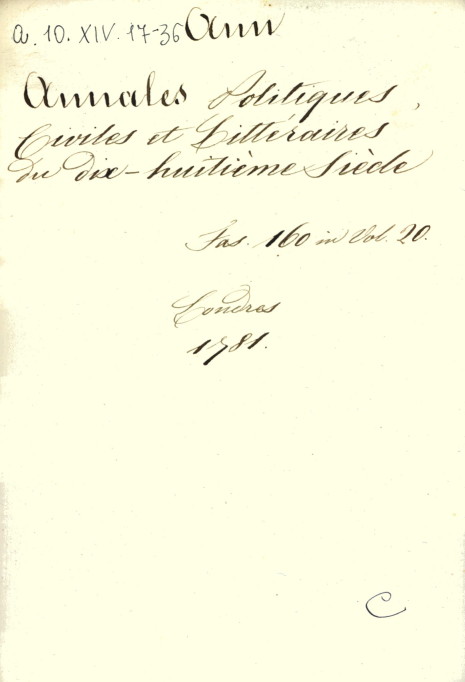 a. 10. XIV. 17-36 Ann
Annales Politiques,
Civiles et Littéraires
du dix-huitième Siècle
Fas. 160 in Vol. 20.
Londres
1781.
C